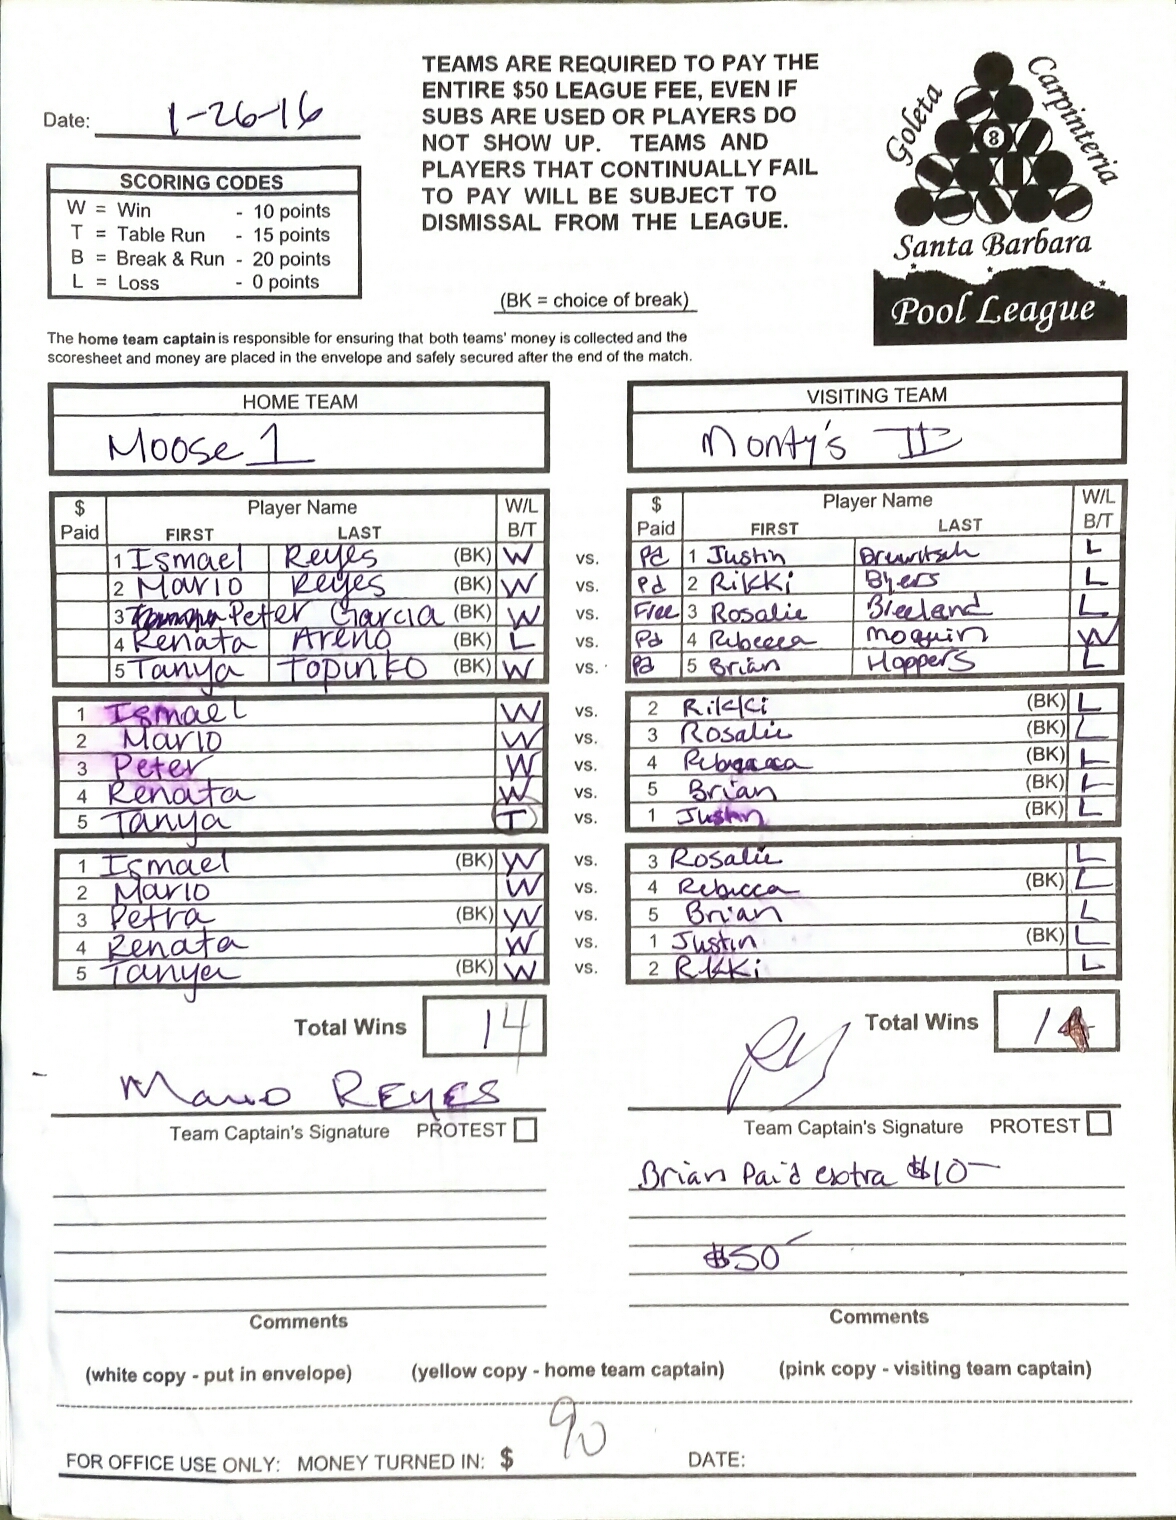 Date: 1-26-16
TEAMS ARE REQUIRED TO PAY THE
ENTIRE $50 LEAGUE FEE, EVEN IF
SUBS ARE USED OR PLAYERS DO
NOT SHOW UP. TEAMS AND
PLAYERS THAT CONTINUALLY FAIL
TO PAY WILL BE SUBJECT TO
DISMISSAL FROM THE LEAGUE.
Goleta
Carpinteria
8
Santa Barbara
Pool League
SCORING CODES
W = Win - 10 points
T = Table Run - 15 points
B = Break & Run - 20 points
L = Loss - 0 points
(BK = choice of break)
The home team captain is responsible for ensuring that both teams' money is collected and the
scoresheet and money are placed in the envelope and safely secured after the end of the match.
HOME TEAM
Moose 1
VISITING TEAM
Monty's II
$ Paid Player Name FIRST LAST W/L B/T
$ Paid Player Name FIRST LAST W/L B/T
1 Ismael Reyes (BK) W vs. Pd 1 Justin L
2 Mario Reyes (BK) W vs. Pd 2 Rikki Byers L
3 Peter Garcia (BK) W vs. Free 3 Rosalie Bieeland L
4 Renata Areno (BK) L vs. Pd 4 Rebecca Moquin W
5 Tanya Topinko (BK) W vs. Pd 5 Brian Hoppers L
1 Ismael W vs. 2 Rikki (BK) L
2 Mario W vs. 3 Rosalie (BK) L
3 Peter W vs. 4 Rebecca (BK) L
4 Renata W vs. 5 Brian (BK) L
5 Tanya T vs. 1 Justin (BK) L
1 Ismael (BK) W vs. 3 Rosalie L
2 Mario W vs. 4 Rebecca (BK) L
3 Petra (BK) W vs. 5 Brian L
4 Renata W vs. 1 Justin (BK) L
5 Tanya (BK) W vs. 2 Rikki L
Total Wins 14
Total Wins 1
Mario REYES
Team Captain's Signature PROTEST
Team Captain's Signature PROTEST
Brian Paid extra $10-
$50-
Comments
Comments
(white copy - put in envelope) (yellow copy - home team captain) (pink copy - visiting team captain)
FOR OFFICE USE ONLY: MONEY TURNED IN: $ 90 DATE: